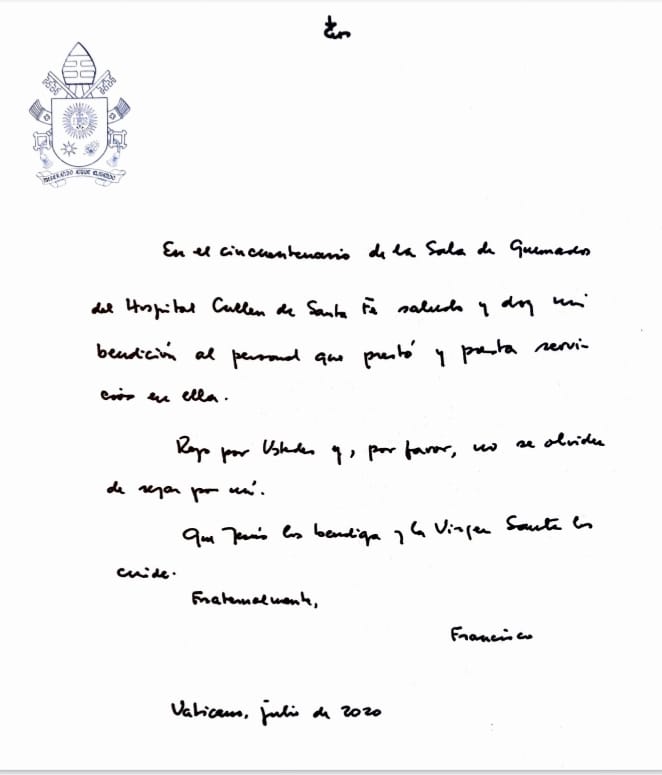 MISERANDO ATQUE ELIGENDO
En el cincuentenario de la Sala de Quemados
del Hospital Cullen de Santa Fe saludo y doy mi
bendición al personal que prestó y presta servi-
cios en ella.
Rezo por Ustedes y, por favor, no se olviden
de rezar por mí.
Que Jesús los bendiga y la Virgen Santa los
cuide.
Fraternalmente,
Francisco
Vaticano, julio de 2020